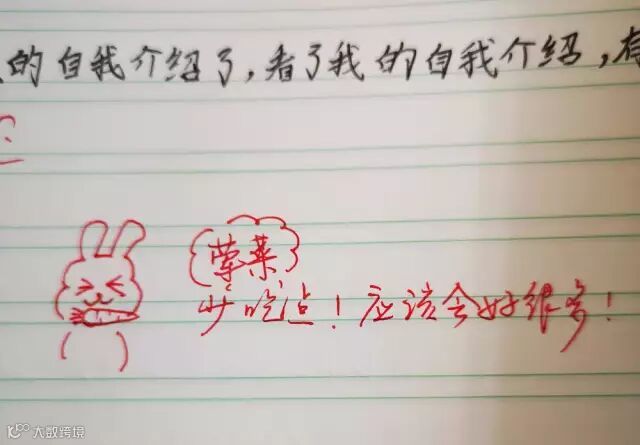 的自我介绍了,看了我的自我介绍,有
荤菜
少吃点!应该会好很多!
大数跨境